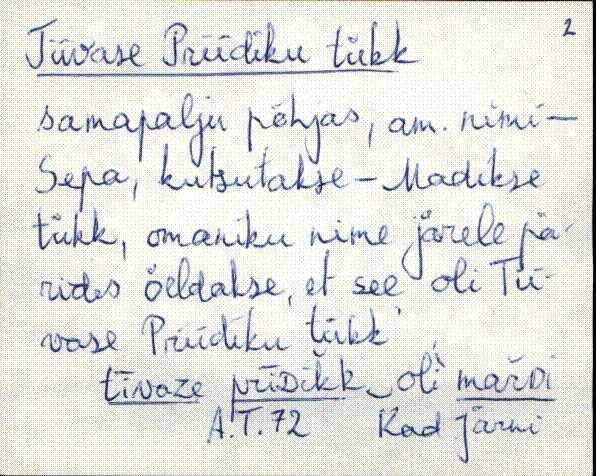 2
Tiivase Priidiku tükk
samapalju põhjas, am. nimi –
Sepa, kutsutakse – Madikse
tükk, omaniku nime järele pä-
rides öeldakse, et see oli Tii-
vase Priidiku tükk
tīvaze prīDikk oli
A.T. 72 Kad järni